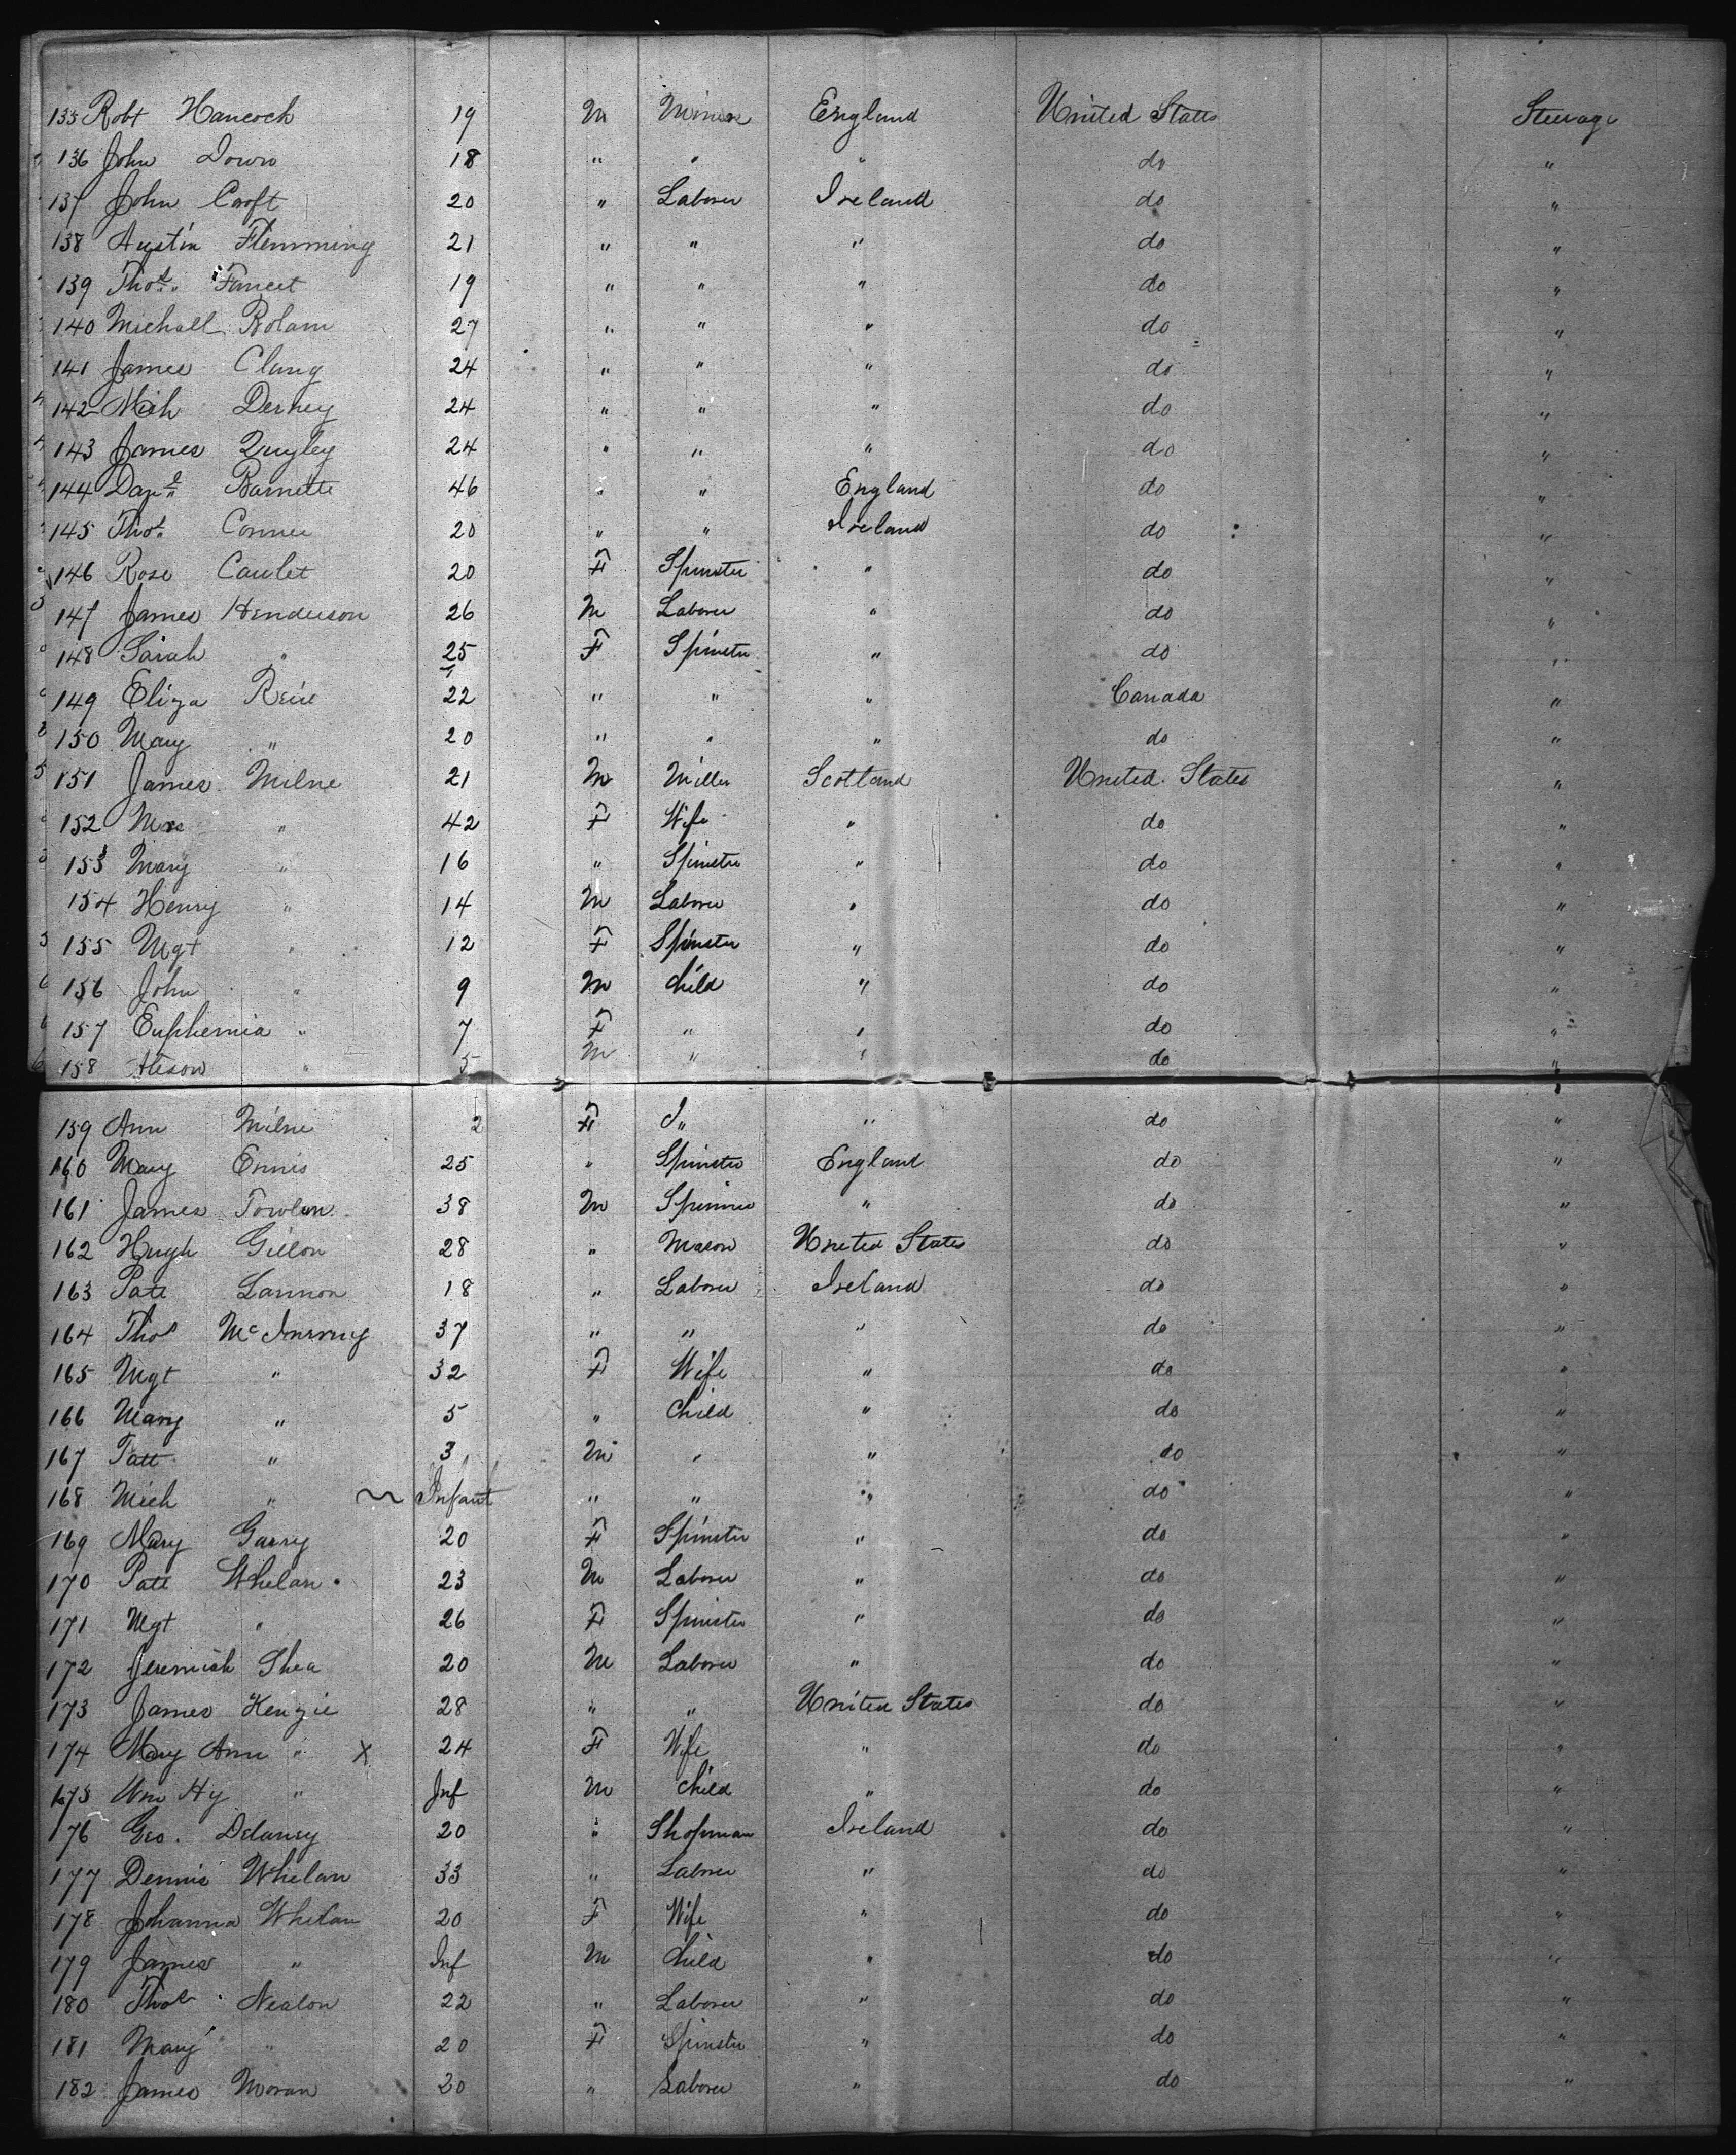 135 Robt Hancock 19 M Miner England United States Steerage
136 John Down 18 " " " do "
137 John Croft 20 " Laborer Ireland do "
138 Austin Flemming 21 " " " do "
139 Thos. 19 " " " do "
140 Michall 27 " " " do "
141 James 24 " " " do "
142 Mich 24 " " " do "
143 James Quigley 24 " " " do "
144 Danl Barnette 46 " " England do "
145 Thos. Conner 20 " " Ireland do "
146 Rose Caulet 20 F Spinster " do "
147 James Henderson 26 M Laborer " do "
148 Sarah " 25 F Spinster " do "
149 Eliza 22 " " " Canada "
150 Mary " 20 " " " do "
151 James Milne 21 M Miller Scotland United States "
152 Mrs " 42 F Wife " do "
153 Mary " 16 " Spinster " do "
154 Henry " 14 M Laborer " do "
155 Mgt " 12 F Spinster " do "
156 John " 9 M Child " do "
157 Euphemia " 7 F " " do "
158 " 5 M " " do "
159 Ann Milne 2 F " " do "
160 Mary Ennis 25 " Spinster England do "
161 James 38 M Spinner " do "
162 Hugh Gillon 28 " Mason United States do "
163 Patt Lannon 18 " Laborer Ireland do "
164 Thos 37 " " " do "
165 Mgt " 32 F Wife " do "
166 Mary " 5 " Child " do "
167 Patt " 3 M " " do "
168 Mich " Infant " " " do "
169 Mary Garry 20 F Spinster " do "
170 Patt Whelan 23 M Laborer " do "
171 Mgt " 26 F Spinster " do "
172 Jeremiah Shea 20 M Laborer " do "
173 James Kenzie 28 " " United States do "
174 Mary Ann " X 24 F Wife " do "
175 Wm Hy " Inf M Child " do "
176 Geo. Delaney 20 " Shopman Ireland do "
177 Dennis Whelan 33 " Laborer " do "
178 Johanna Whelan 20 F Wife " do "
179 James " Inf M Child " do "
180 Thos Nealon 22 " Laborer " do "
181 Mary " 20 F Spinster " do "
182 James Moran 20 " Laborer " do "